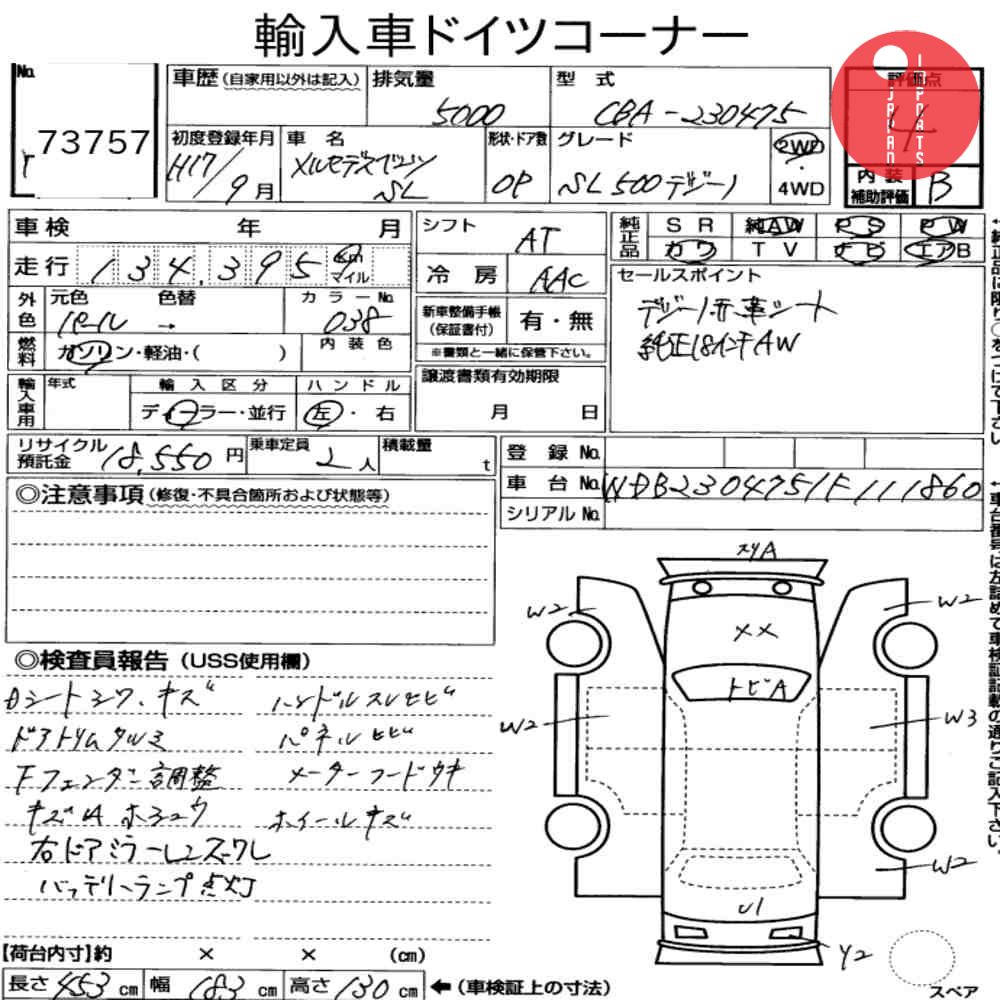 輸入車ドイツコーナー
No.
73757
車歴(自家用以外は記入) 排気量 5000 型式 CBA-230475 評価点 4
初度登録年月 H17/9月 車名 メルセデスベンツ SL 形状・ドア数 OP グレード SL500デジーノ 2WD・4WD 内装補助評価 B
JAPAN IMPORTS
車検 年 月
走行 134,395 km マイル
外色 元色 パール 色替 → カラーNo. 038
燃料 ガソリン・軽油・( ) 内装色
輸入車用 年式 輸入区分 ディーラー・並行 ハンドル 左・右
シフト AT
冷房 AAC
新車整備手帳(保証書付) 有・無
※書類と一緒に保管下さい。
譲渡書類有効期限
月 日
純正品 SR 純AW PS PW
カワ TV ナビ エアB
セールスポイント
デジーノ赤革シート
純正18インチAW
リサイクル預託金 18,550円 乗車定員 2人 積載量 t
登録No.
車台No. WDB2304751F111860
シリアルNo.
◎注意事項(修復・不具合箇所および状態等)
◎検査員報告(USS使用欄)
Dシートシワ、キズ ハンドルスレヒビ
ドアトリムタルミ パネルヒビ
Fフェンダー調整 メーターフードウキ
キズA ホシュウ ホイールキズ
右ドアミラーレンズワレ
バッテリーランプ点灯
スリA
W2 W2
××
トビA
W2 W3
W2
U1
Y2
スペア
【荷台内寸】約 × × (cm)
長さ 453 cm 幅 183 cm 高さ 130 cm ←(車検証上の寸法)
↑車台番号は左詰めで車検証記載の通りご記入下さい。